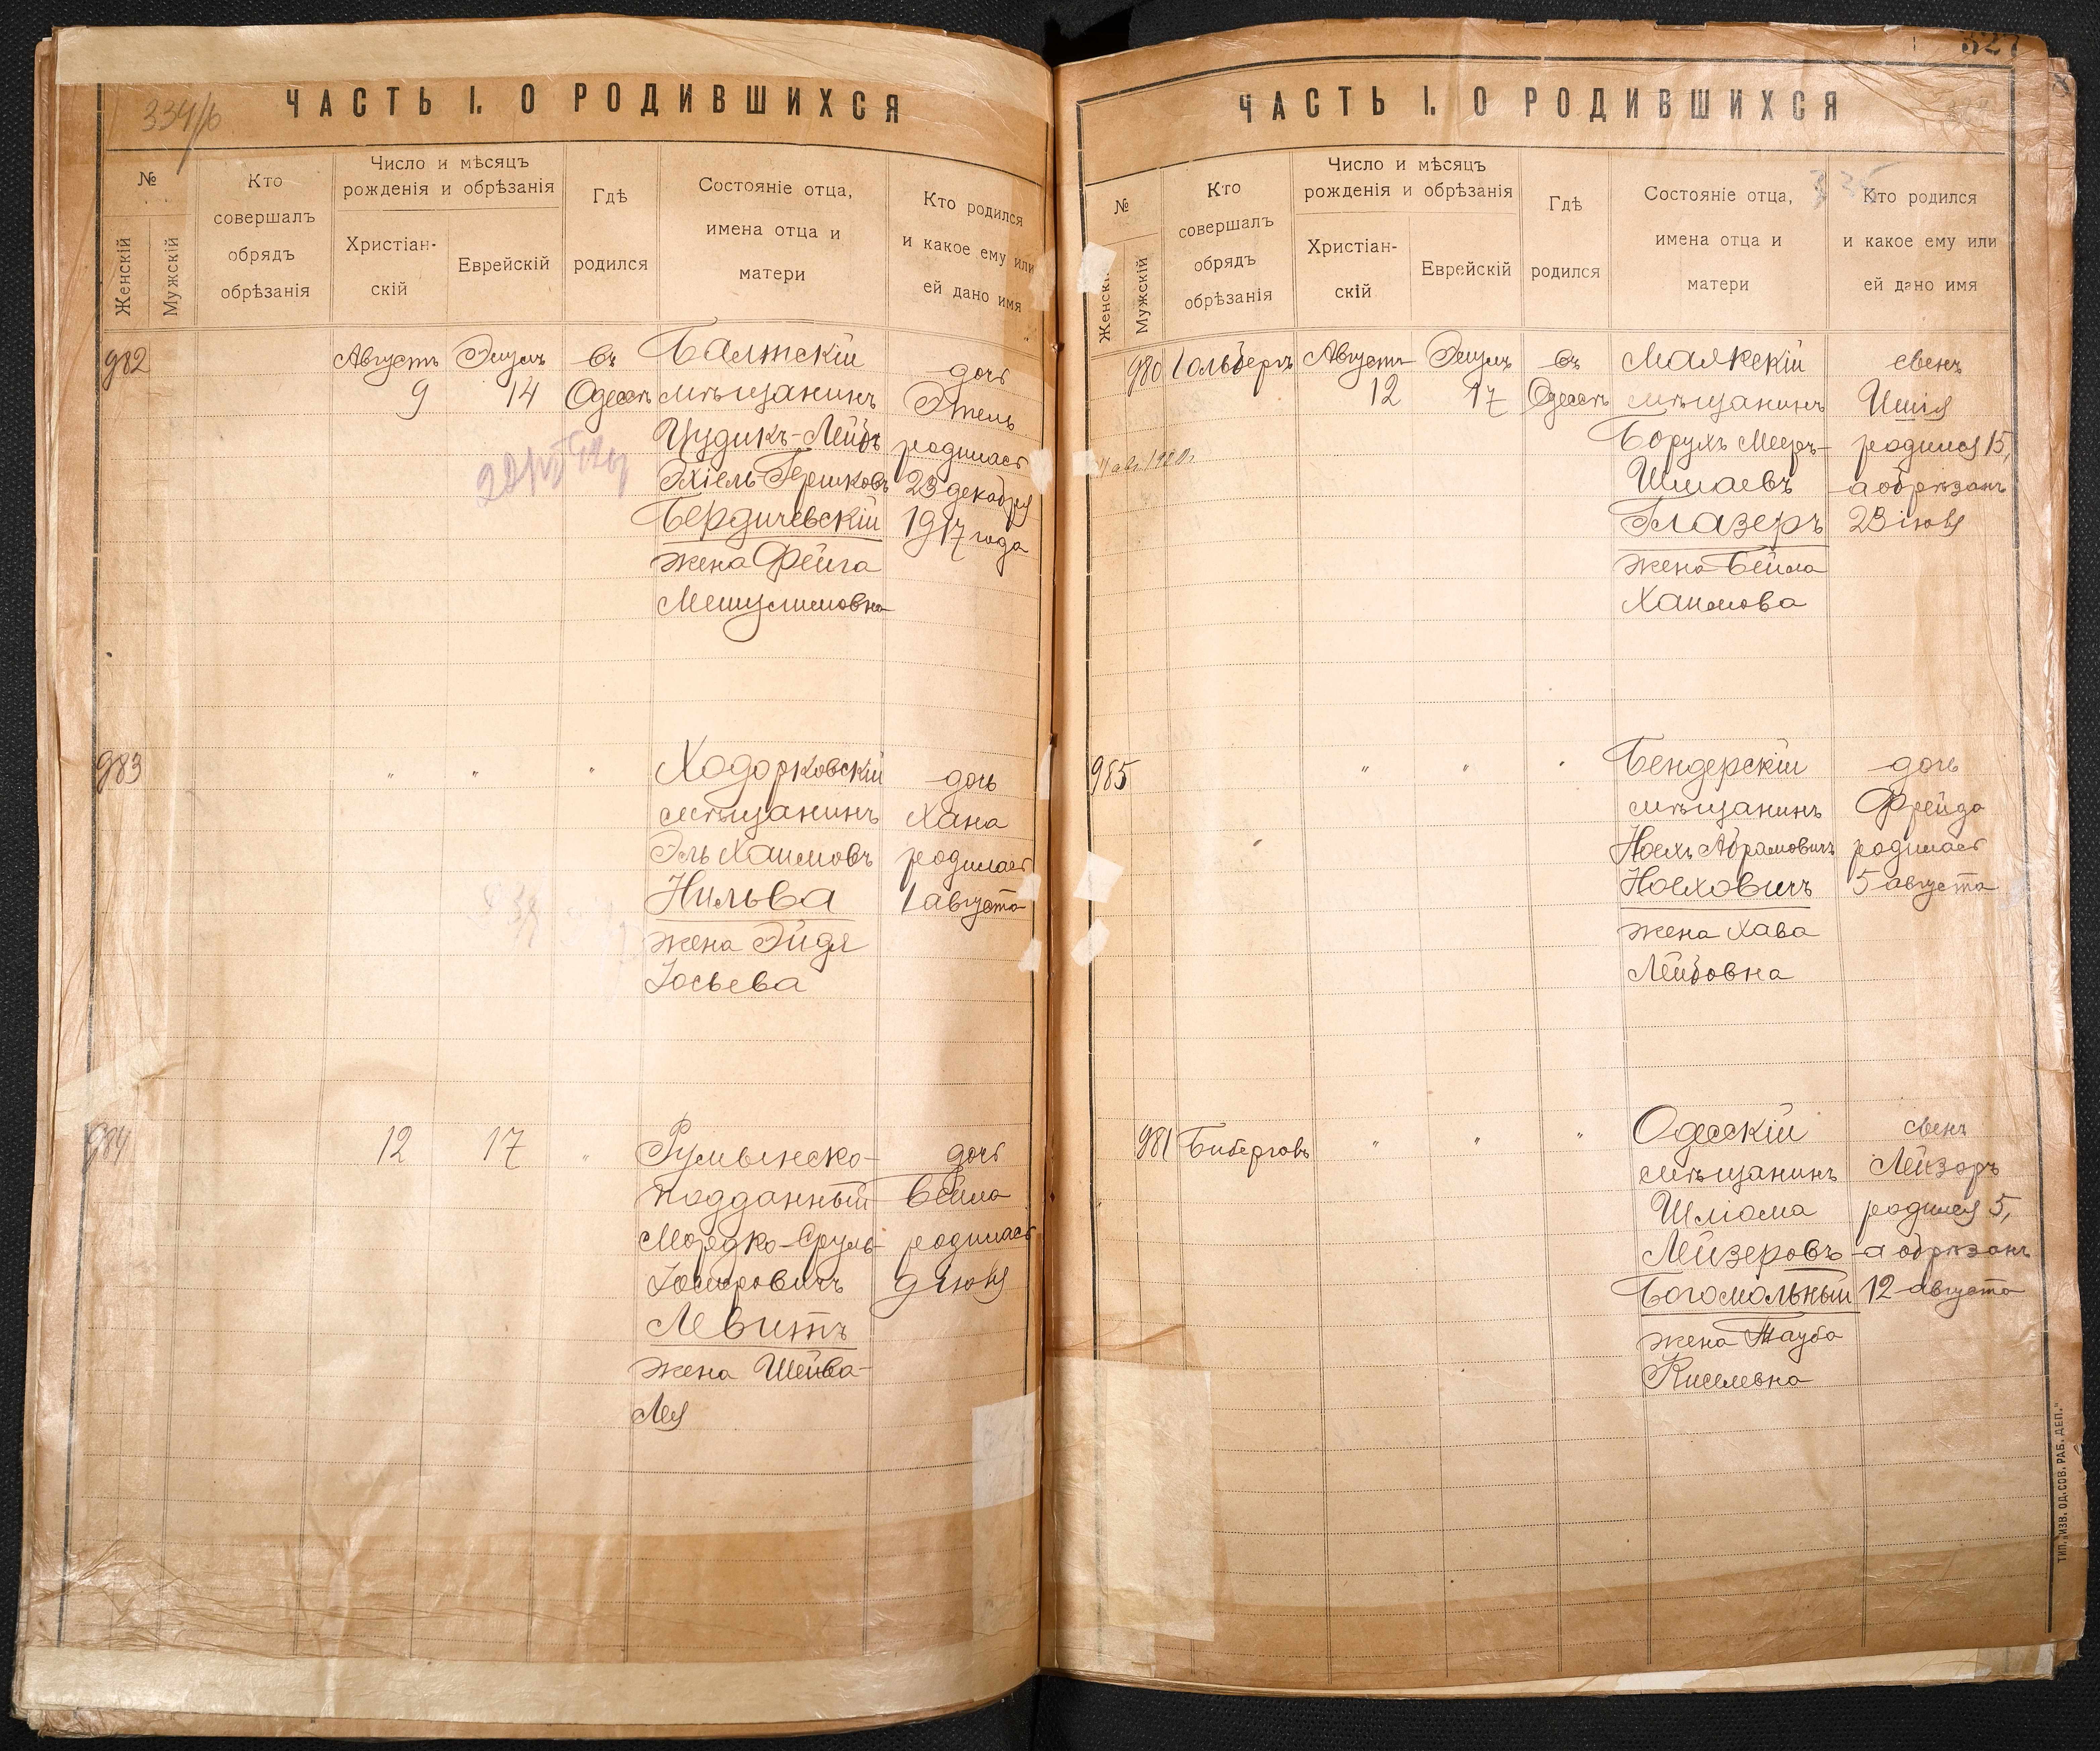 334/б
ЧАСТЬ I. О РОДИВШИХСЯ
№
Женскій
Мужскій
Кто
совершалъ
обрядъ
обрѣзанія
Число и мѣсяцъ
рожденія и обрѣзанія
Христіан-
скій
Еврейскій
Гдѣ
родился
Состояніе отца,
имена отца и
матери
Кто родился
и какое ему или
ей дано имя
982
Августъ
9
Элулъ
14
въ
Одессѣ
Балтскій
мѣщанинъ
Цудикъ-Лейбъ
Эхіель-Гершковъ
Бердичевскій
жена Фейга
Мешулимовна
дочь
Этель
родилась
23 декабря
1917 года
983
"
"
"
Ходорковскій
мѣщанинъ
Эль Хаимовъ
Нильва
жена Эйдя
Іосьева
дочь
Хана
родилась
1 августа
984
12
17
"
Румынско-
подданный
Мордко-Сруль
Левитъ
жена Шейва-
Лея
дочь
Бейла
родилась
9 іюня
327
ЧАСТЬ I. О РОДИВШИХСЯ
№
Женскі
Мужскій
Кто
совершалъ
обрядъ
обрѣзанія
Число и мѣсяцъ
рожденія и обрѣзанія
Христіан-
скій
Еврейскій
Гдѣ
родился
Состояніе отца,
имена отца и
матери
Кто родился
и какое ему или
ей дано имя
980
Гольбергъ
Августъ
12
Элулъ
17
въ
Одессѣ
Маякскій
мѣщанинъ
Борухъ Мееръ-
Шмаевъ
Глазеръ
жена Бейла
Хаимова
сынъ
Ишія
родился 15,
а обрѣзанъ
23 іюня
985
"
"
"
Бендерскій
мѣщанинъ
Ноехъ Абрамовичъ
Ноеховичъ
жена Хава
Лейбовна
дочь
Фрейда
родилась
5 августа
981
Биберговъ
"
"
"
Одесскій
мѣщанинъ
Шліома
Лейзеровъ
Богомольный
жена Тауба
Киселевна
сынъ
Лейзоръ
родился 5,
а обрѣзанъ
12 августа
ТИП. „ИЗВ. ОД. СОВ. РАБ. ДЕП."